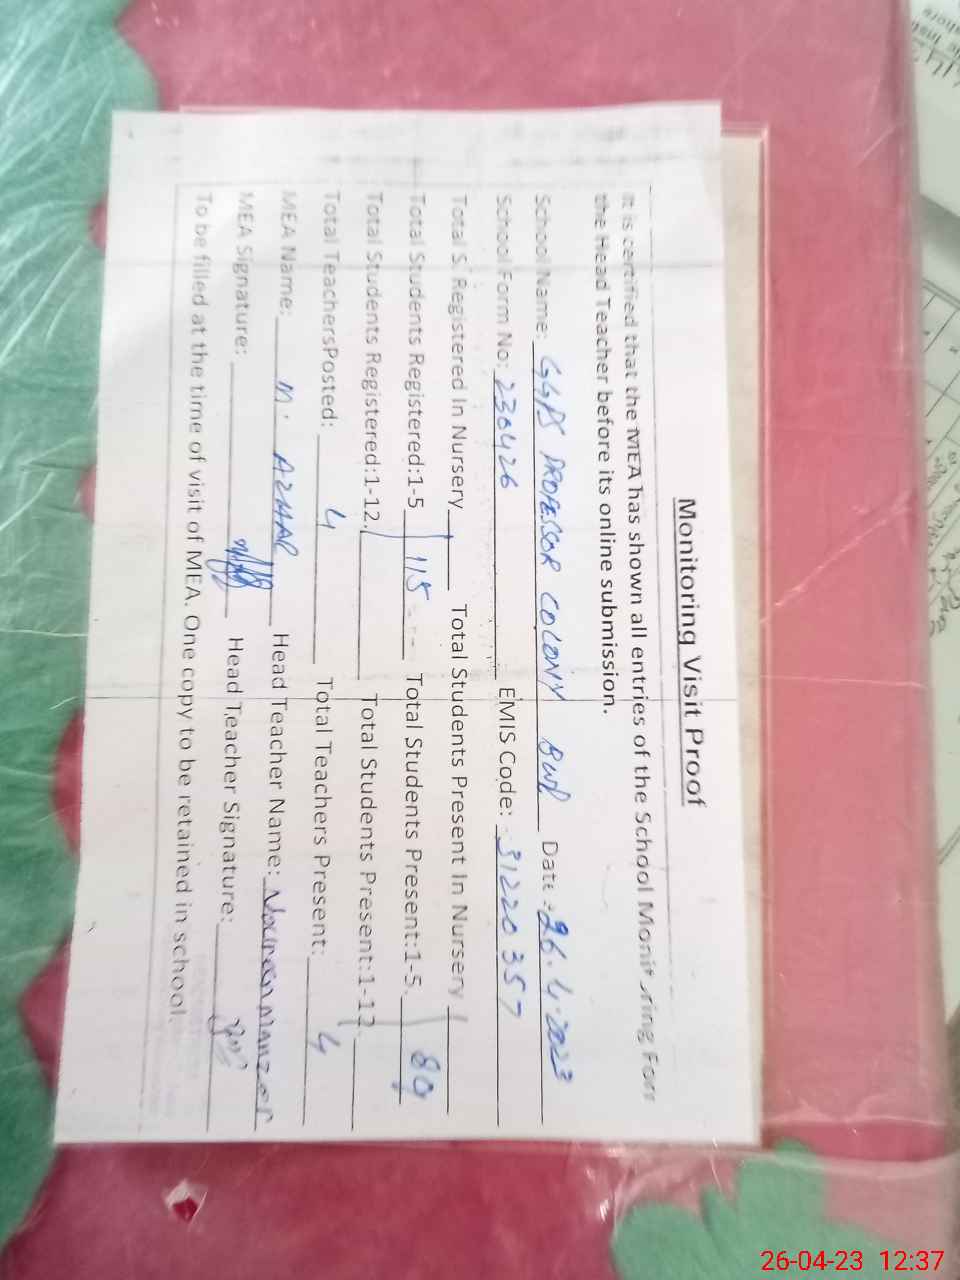 Monitoring Visit Proof
It is certified that the MEA has shown all entries of the School Monitoring Form
the Head Teacher before its online submission.
School Name: GGPS PROFESSOR COLONY BWP Date: 26.4.2023
School Form No: 230426 EMIS Code: 31220357
Total S. Registered In Nursery Total Students Present In Nursery
Total Students Registered:1-5 115 Total Students Present:1-5.
Total Students Registered:1-12. Total Students Present:1-12.
Total TeachersPosted: 4 Total Teachers Present: 4
MEA Name: M. AZHAR Head Teacher Name: Manzor
MEA Signature: Head Teacher Signature:
To be filled at the time of visit of MEA. One copy to be retained in school.
26-04-23 12:37